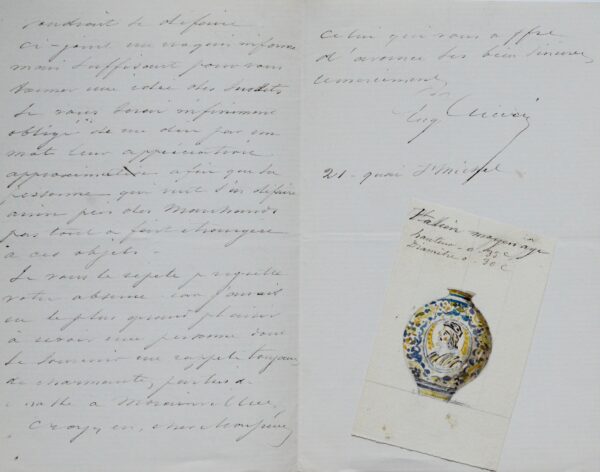 voudrait se défaire
ci-joint un croquis informe
mais suffisant pour vous
donner une idée des susdits
Je vous serai infiniment
obligé de me dire par un
mot leur appréciation
approximative afin que la
personne qui veut s'en défaire
aurun près des Marchands
pas tout à fait étrangère
à ces objets.
Je vous le répète je regrette
votre absence car j'aurais
eu le plus grand plaisir
à revoir une personne dont
le souvenir me rappelle toujours
de charmantes parties de
à
Croyez en, cher Monsieur,
celui qui vous offre
d'avance ses bien sincères
remerciements,
Aug
21 - quai St Michel
moyen âge
hauteur - 0.35 c
Diamètre 0.30 c